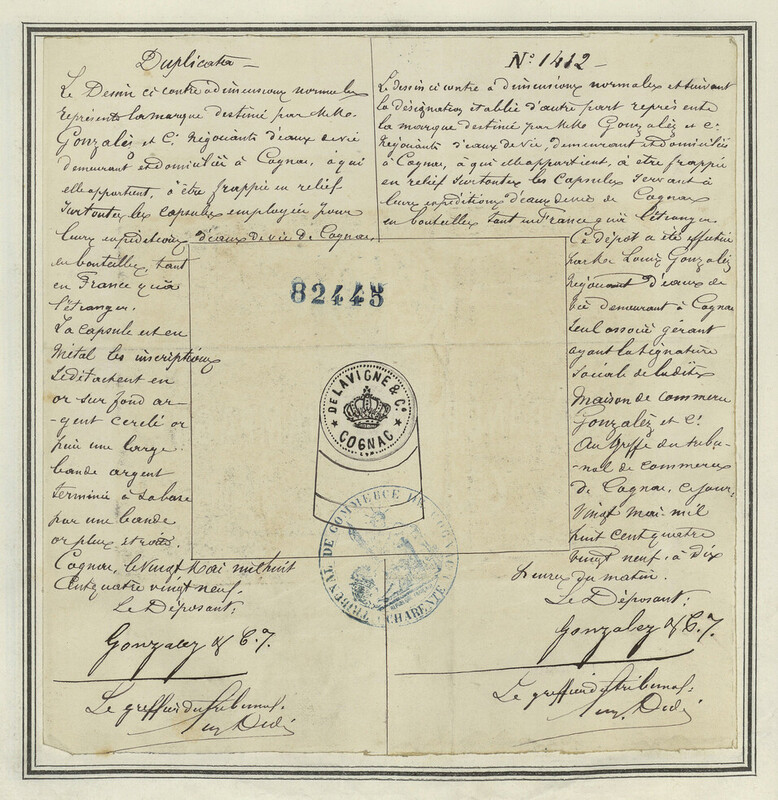 Duplicata
Le Dessin ci contre à dimensions normales
représente la marque destiné par MM.
Gonzalès et Cie Négociants d'eaux de vie
demeurant et domiciliés à Cognac, à qui
elle appartient, à être frappée en relief
surtoutes les capsules employées pour
leurs expéditions d'eaux de vie de Cognac,
en bouteilles, tant
en France qu'à
l'étranger.
La capsule est en
métal les inscriptions
se détachent en
or sur fond ar-
-gent cerclé or
puis une large
bande argent
terminée à sa base
par une bande
or plus étroite.
Cognac, le vingt Mai mil huit
Cent quatre vingt neuf.
Le Déposant:
Gonzalez & C.
Le greffier du tribunal.
No 1412
Le dessin ci contre à dimensions normales et suivant
la désignation établie d'autre part représente
la marque destiné par MM. Gonzalès et Cie
Négociants d'eaux de vie, demeurant et domiciliés
à Cognac, à qui elle appartient, à être frappée
en relief surtoutes les capsules servant à
leurs expéditions d'eaux de vie de Cognac
en bouteilles tant en France qu'à l'étranger.
Ce dépôt a été effectué
par Mr Louis Gonzalès
Négociant d'eaux de
vie demeurant à Cognac
seul associé gérant
ayant la signature
sociale de la dite
Maison de commerce
Gonzalès et Cie
Au greffe du tribu-
-nal de commerce
de Cognac, ce jour,
Vingt mai mil
huit cent quatre
vingt neuf, à dix
heures du matin.
Le Déposant:
Gonzalez & C.
Le greffier du tribunal.
82445
DE LAVIGNE & Co
COGNAC
TRIBUNAL DE COMMERCE DE COGNAC
CHARENTE